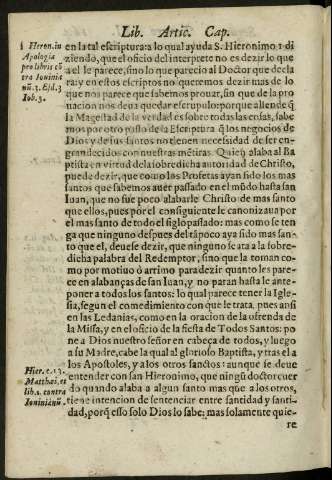 Lib. Artic. Cap.
1 Hieron. in
Apologia
pro libris cõ
tra Iouinia
nũ. 3. E/d. 3
Iob. 3.
en la tal escriptura: a lo qual ayuda S. Hieronimo 1 di
ziendo, que el oficio del interprete no es dezir lo que
a el le parece, sino lo que parecio al Doctor que decla
ra: y en estos escriptos no queremos dezir mas de lo
que nos parece que sabemos prouar, sin que de la pro
nacion nos deua quedar escrupulo: porque allende q̃
la Magestad de la verdad es sobre todas las cosas, sabe
mos por otro passo de la Escriptura q̃ los negocios de
Dios y de sus santos no tienen necessidad de ser en-
grandecidos con nuestras mẽtiras. Quien alaba al Ba
ptista en virtud de la sobredicha autoridad de Christo,
puede dezir, que como los Profetas ayan sido los mas
santos que sabemos auer passado en el mũdo hasta san
Iuan, que no fue poco alabarle Christo de mas santo
que ellos, pues por el consiguiente le canonizaua por
el mas santo de todo el siglo passado: mas como se ten
ga que ninguno despues del tãpoco aya sido mas san-
to que el, deuese dezir, que ninguno se ata a la sobre-
dicha palabra del Redemptor, sino que la toman co-
mo por motiuo ò arrimo para dezir quanto les pare-
ce en alabanças de san Iuan, y no paran hasta le ante-
poner a todos los santos: lo qual parece tener la Igle-
sia, segun el comedimiento con que le trata, pues ansi
en las Ledanias, como en la oracion de la ofrenda de
la Missa, y en el oficio de la fiesta de Todos Santos: po
ne a Dios nuestro señor en cabeça de todos, y luego
a su Madre, cabe la qual al glorioso Baptista, y tras el a
los Apostoles, y a los otros sanctos: aunque se deue
entender con san Hieronimo, que ningũ doctor cuer
do quando alaba a algun santo mas que a los otros,
tiene intencion de sentenciar entre santidad y santi-
dad, porq̃ esso solo Dios lo sabe: mas solamente quie-
re
Hier. c. 13.
Matthai, et
lib. 1. contra
Iouinianũ.